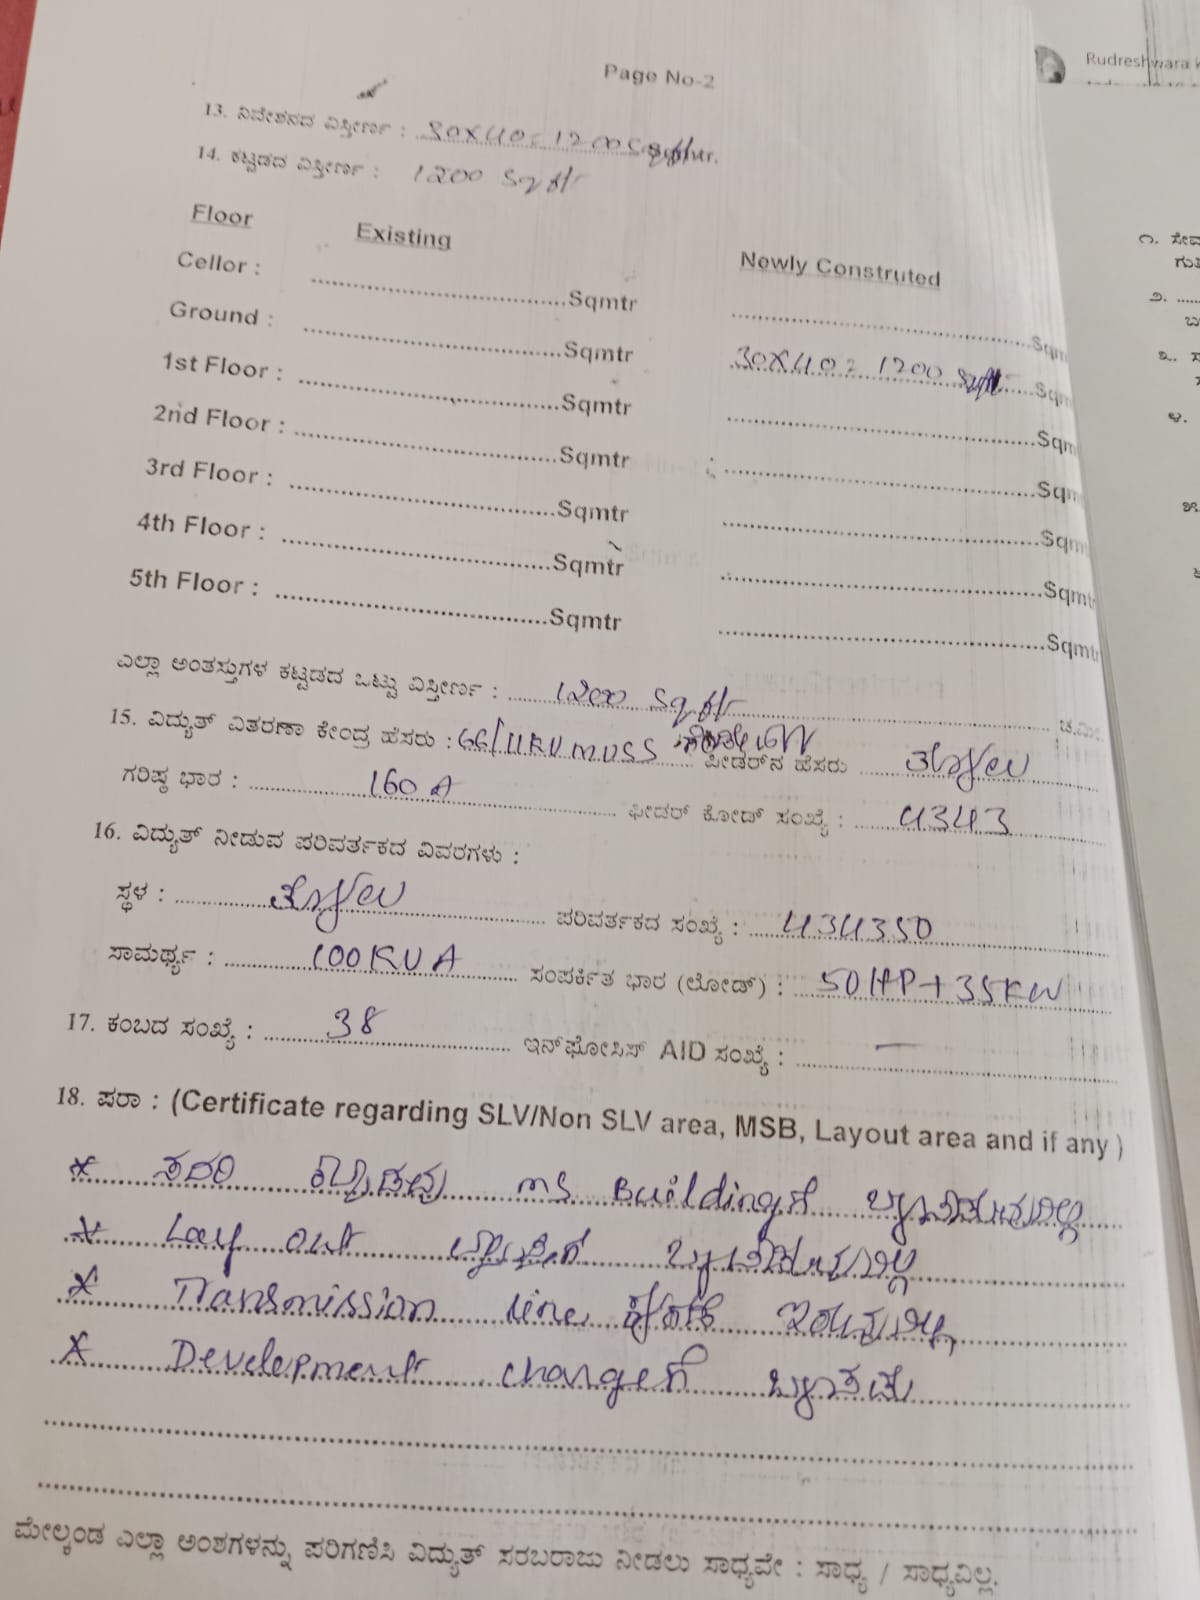 Page No-2
Rudreshwara
13. ನಿವೇಶನದ ವಿಸ್ತೀರ್ಣ : 30X40= 1200 Sqft
14. ಕಟ್ಟಡದ ವಿಸ್ತೀರ್ಣ : 1200 Sqft
Floor Existing Newly Construted
Cellor : Sqmtr Sqm
Ground : Sqmtr 30X40= 1200 Sqft Sqm
1st Floor : Sqmtr Sqm
2nd Floor : Sqmtr Sqm
3rd Floor : Sqmtr Sqm
4th Floor : Sqmtr Sqmt
5th Floor : Sqmtr Sqmtr
ಎಲ್ಲಾ ಅಂತಸ್ತುಗಳ ಕಟ್ಟಡದ ಒಟ್ಟು ವಿಸ್ತೀರ್ಣ : 1200 Sqft ಚ.ಮೀ.
15. ವಿದ್ಯುತ್ ವಿತರಣಾ ಕೇಂದ್ರ ಹೆಸರು : MUSS ಫೀಡರ್‌ನ ಹೆಸರು
ಗರಿಷ್ಠ ಭಾರ : 160 A ಫೀಡರ್ ಕೋಡ್ ಸಂಖ್ಯೆ : 4343
16. ವಿದ್ಯುತ್ ನೀಡುವ ಪರಿವರ್ತಕದ ವಿವರಗಳು :
ಸ್ಥಳ : ಪರಿವರ್ತಕದ ಸಂಖ್ಯೆ : 434350
ಸಾಮರ್ಥ್ಯ : 100KVA ಸಂಪರ್ಕಿತ ಭಾರ (ಲೋಡ್) : 50HP+35KW
17. ಕಂಬದ ಸಂಖ್ಯೆ : 38 ಇನ್‌ಫೋಸಿಸ್ AID ಸಂಖ್ಯೆ : —
18. ಷರಾ : (Certificate regarding SLV/Non SLV area, MSB, Layout area and if any )
* ಸದರಿ ಕಟ್ಟಡವು MS Buildingಗೆ ಒಳಪಡುವುದಿಲ್ಲ
* Lay out ವ್ಯಾಪ್ತಿಗೆ ಒಳಪಡುವುದಿಲ್ಲ
* Transmission line ಕೆಳಗಡೆ ಇರುವುದಿಲ್ಲ
* Development chargeಗೆ
ಮೇಲ್ಕಂಡ ಎಲ್ಲಾ ಅಂಶಗಳನ್ನು ಪರಿಗಣಿಸಿ ವಿದ್ಯುತ್ ಸರಬರಾಜು ನೀಡಲು ಸಾಧ್ಯವೇ : ಸಾಧ್ಯ / ಸಾಧ್ಯವಿಲ್ಲ.